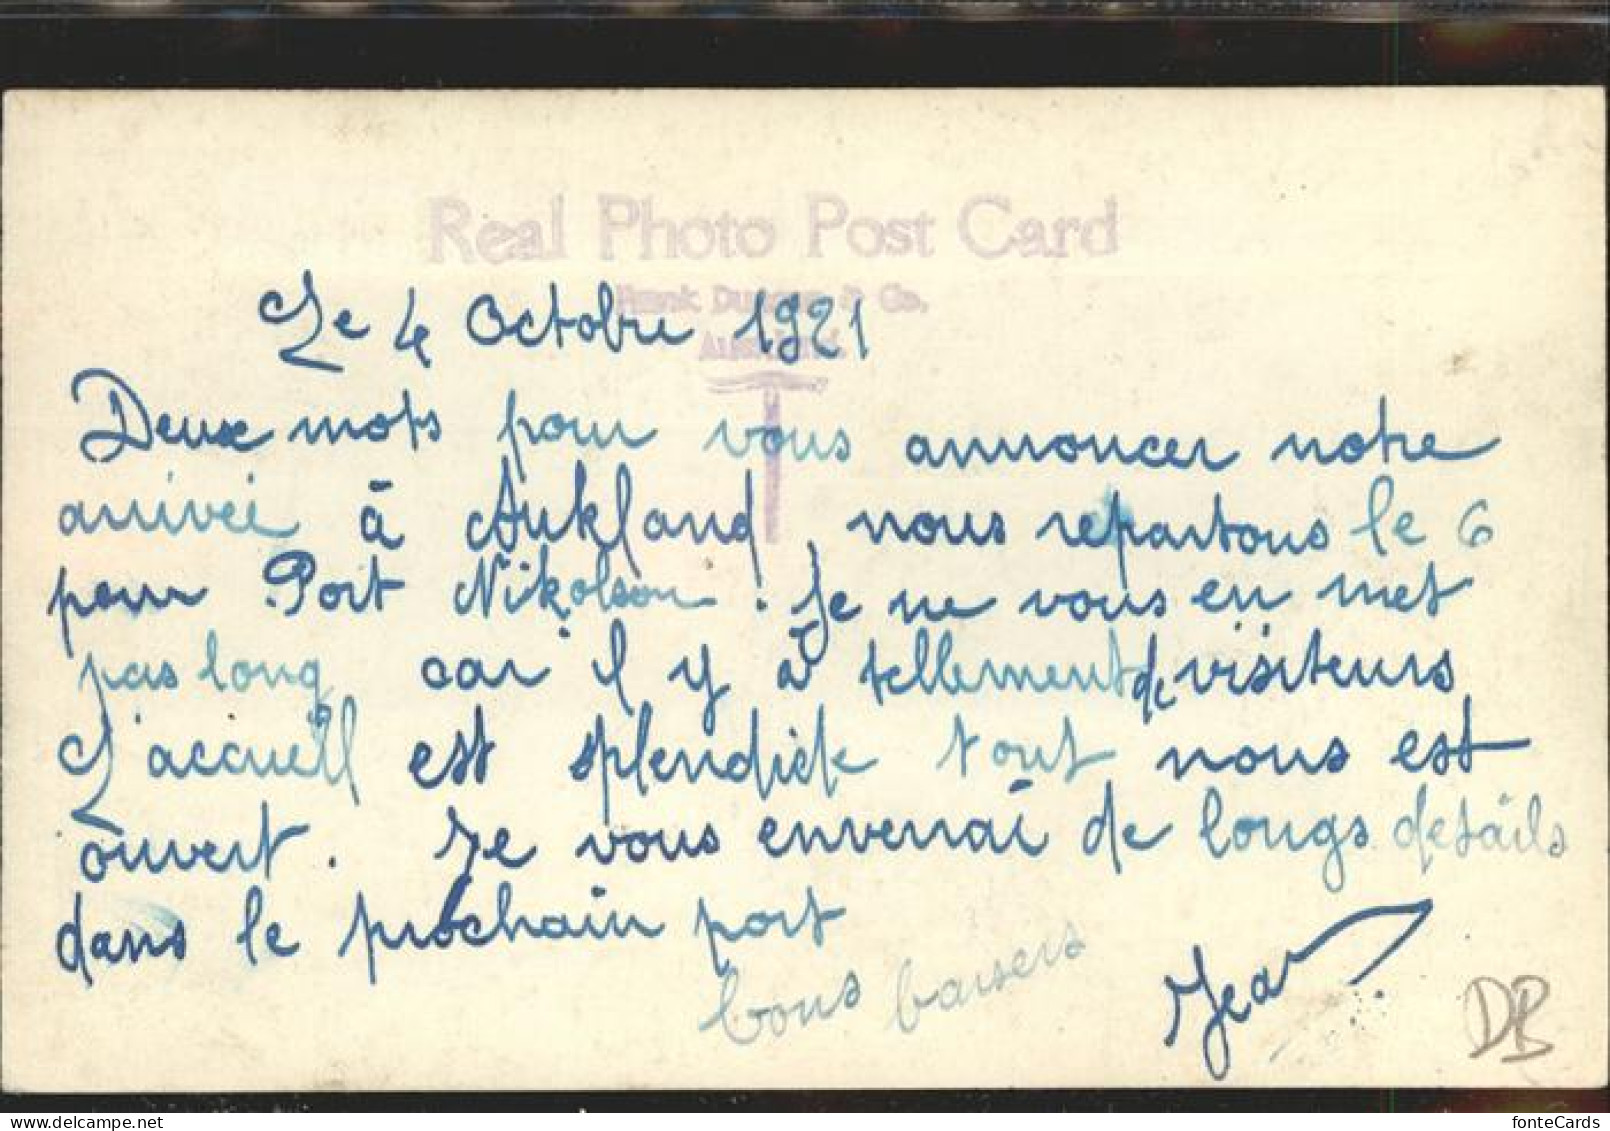 Real Photo Post Card
Frank Duncan & Co.
Auckland.
Le 4 Octobre 1921
Deux mots pour vous annoncer notre
arrivée à Aukland, nous repartons le 6
pour Port Nikolson. Je ne vous en met
pas long car il y à tellement de visiteurs
L'accueill est splendide tout nous est
ouvert. Je vous enverrai de longs détails
dans le prochain port
bons baisers Jean
DB
fonteCards